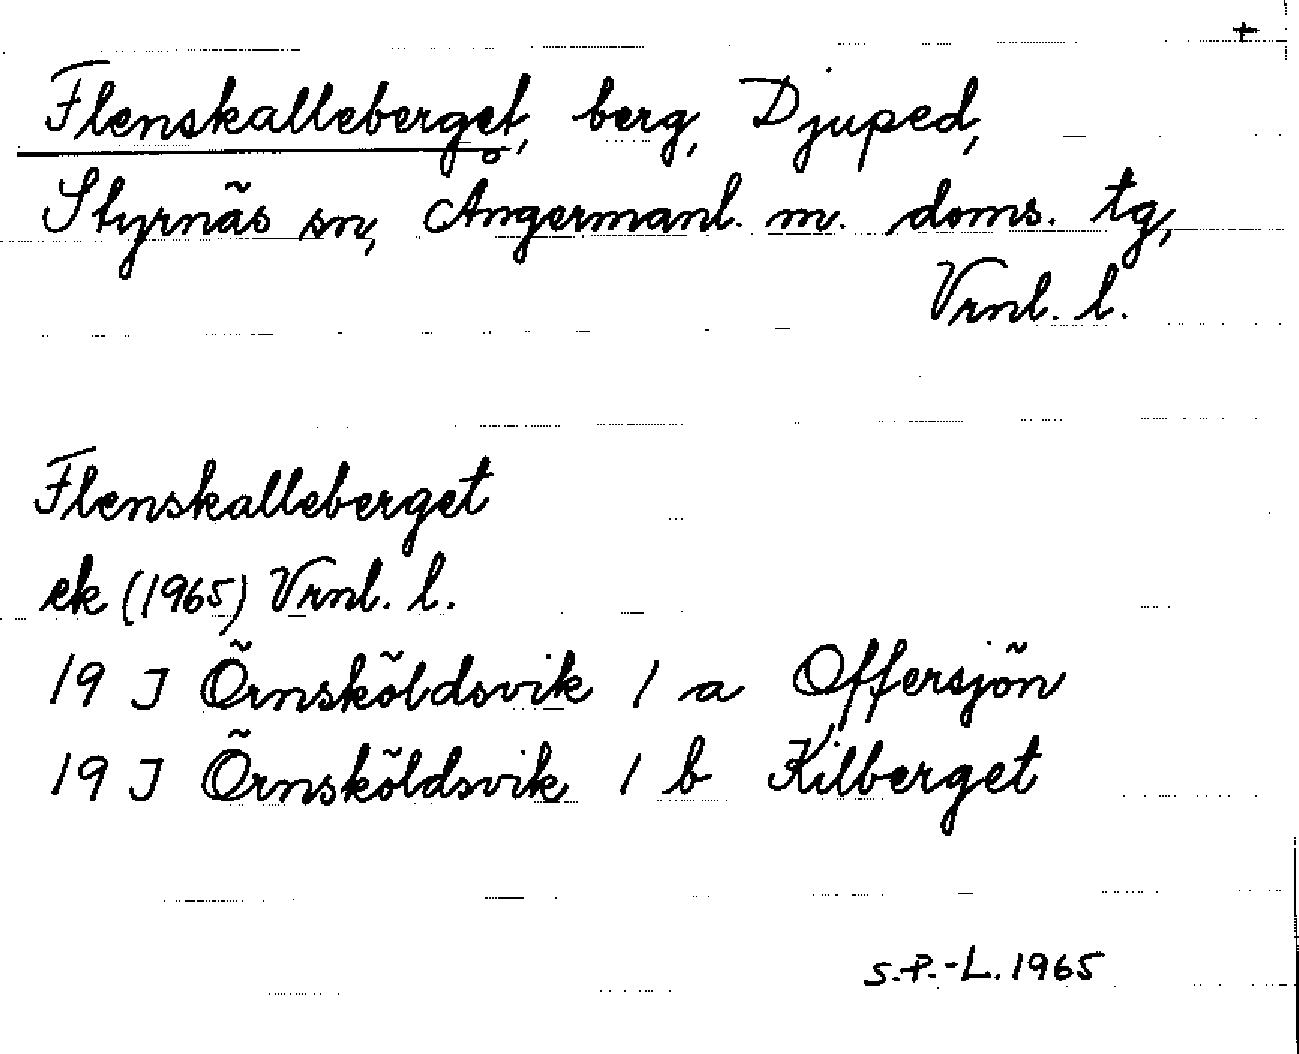 +
Flenskalleberget, berg, Djuped,
Styrnäs sn, Ångermanl. m. doms. tg,
Vrnl. l.
Flenskalleberget
ek (1965) Vrnl. l.
19 J Örnsköldsvik 1 a Offersjön
19 J Örnsköldsvik 1 b Kilberget
S.P.-L. 1965